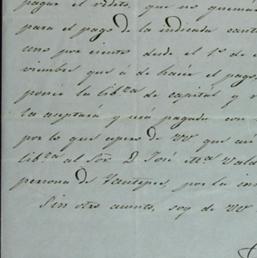 pagar el rédito, que no
para el pago de la indicada cant
uno por ciento desde el 1.º de
viembre que á de hacer el pago
la libza de capital y
la aceptará y será pagada con
por lo que espero de VV que
libza al Sor. D. José Ma. Vald
persona de Tautepec, por la
Sin otro asunto, soy de VV